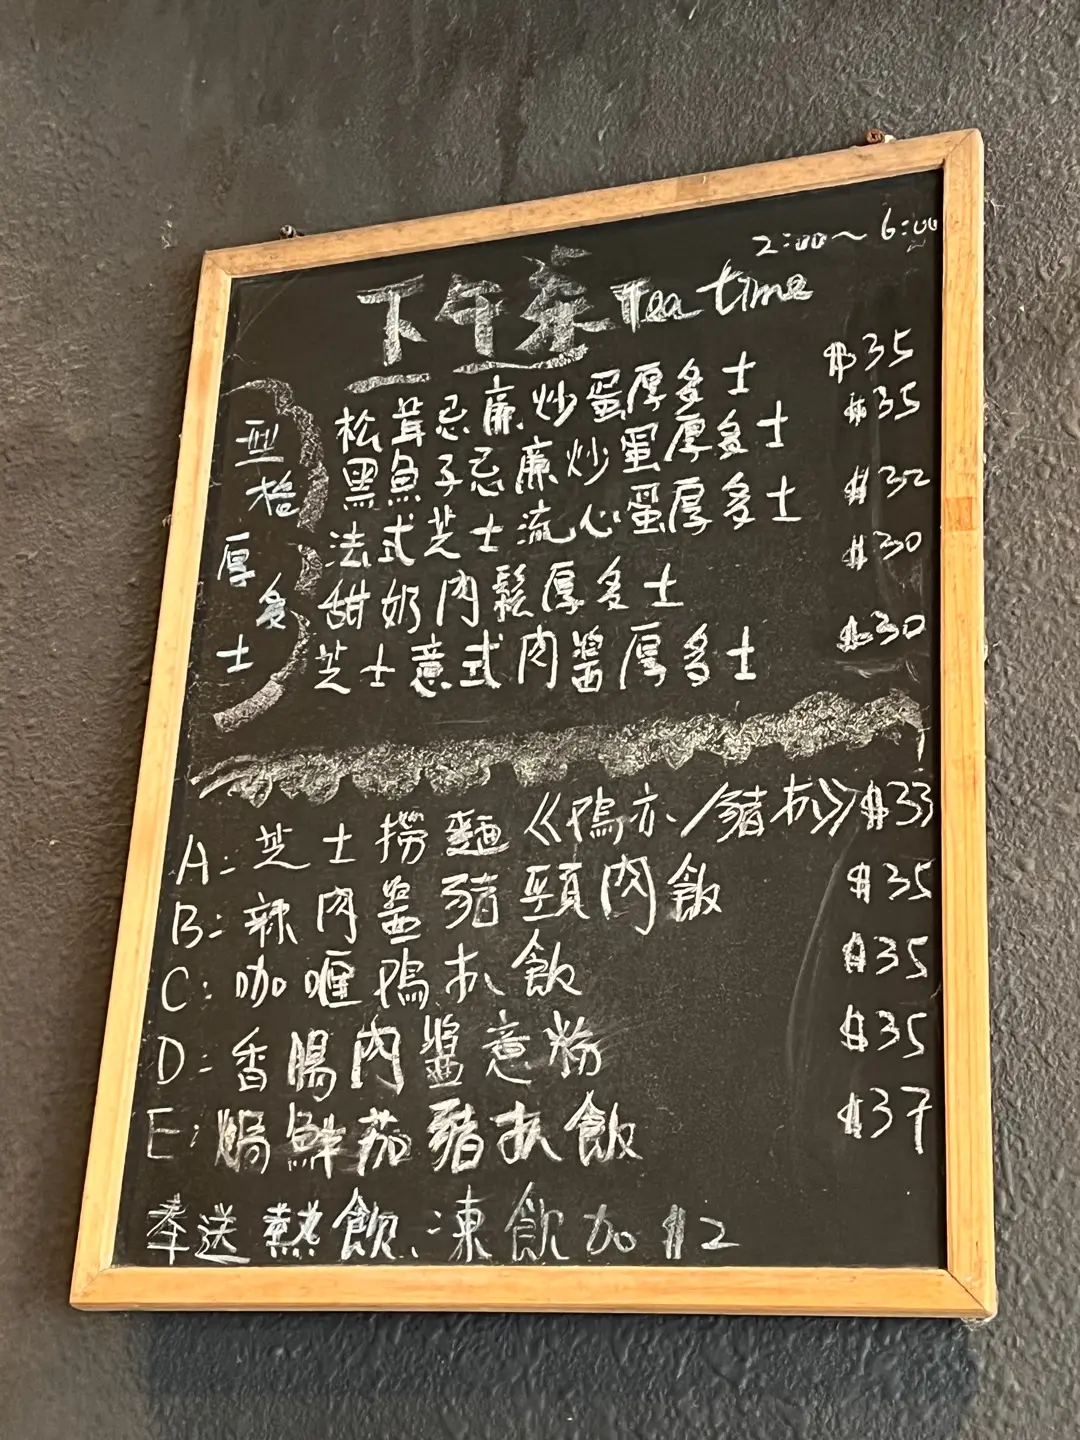 2:00~6:00
下午茶 Tea time
厚多士
松茸忌廉炒蛋厚多士 $35
黑魚子忌廉炒蛋厚多士 $35
法式芝士流心蛋厚多士 $32
甜奶肉鬆厚多士 $30
芝士意式肉醬厚多士 $30
A: 芝士撈麵《鴨扒/豬扒》$33
B: 辣肉醬豬頸肉飯 $35
C: 咖喱鴨扒飯 $35
D: 香腸肉醬意粉 $35
E: 焗鮮茄豬扒飯 $37
奉送熱飲、凍飲加$2